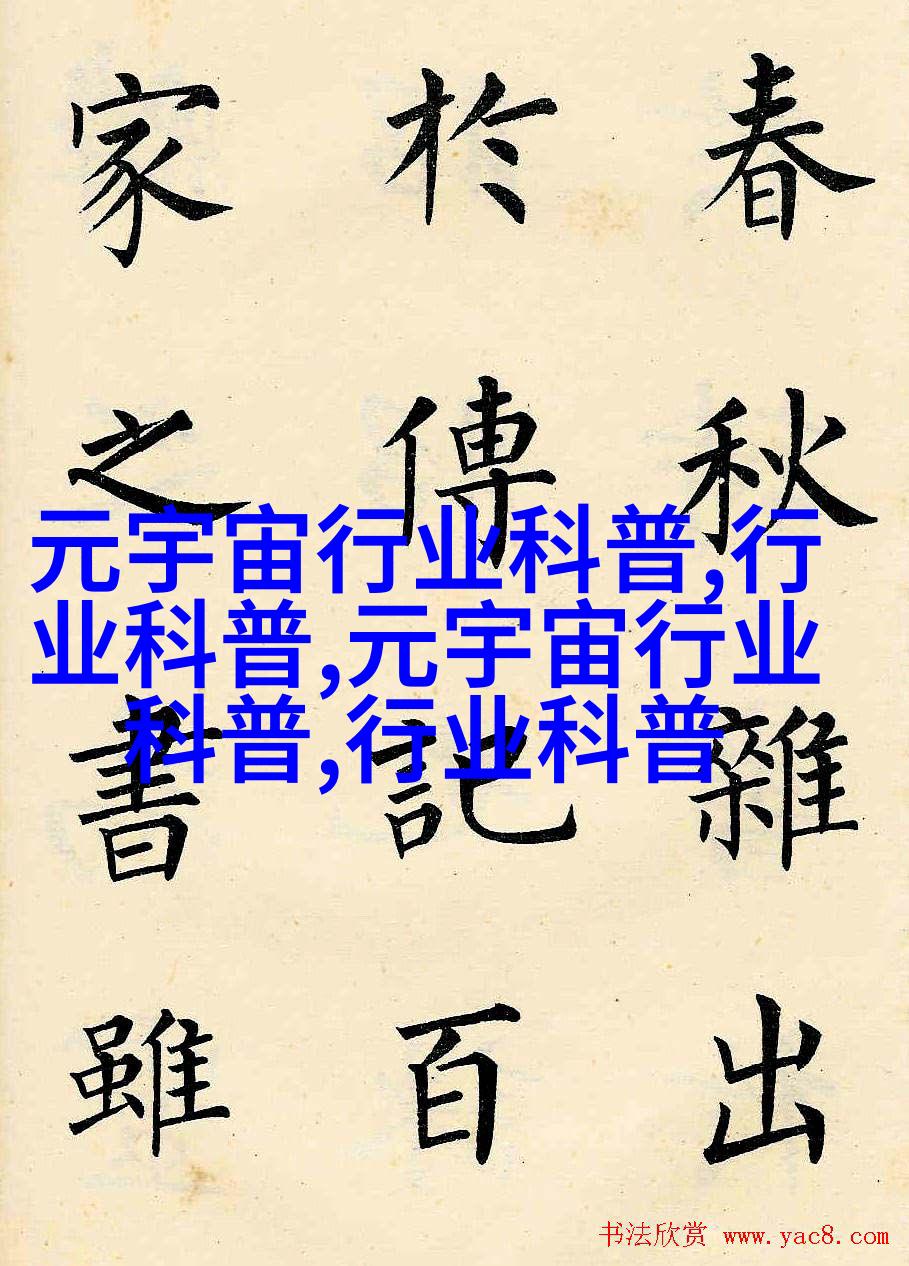 春秋雜出
於傳記百
家之書雖
元宇宙行业科普,行
业科普,元宇宙行业
科普,行业科普
书法欣赏 www.yac8.com